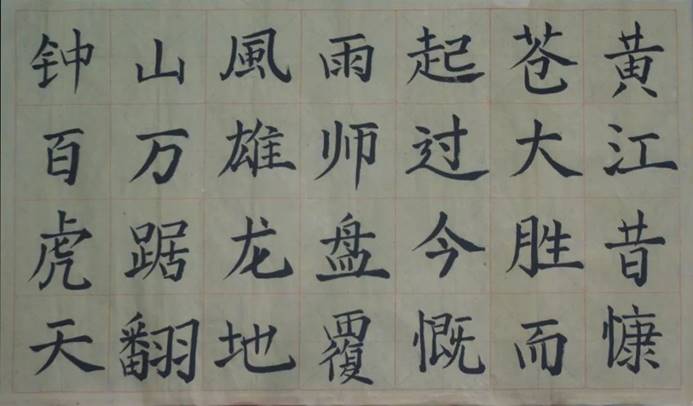 钟山風雨起苍黄
百万雄师过大江
虎踞龙盘今胜昔
天翻地覆慨而慷